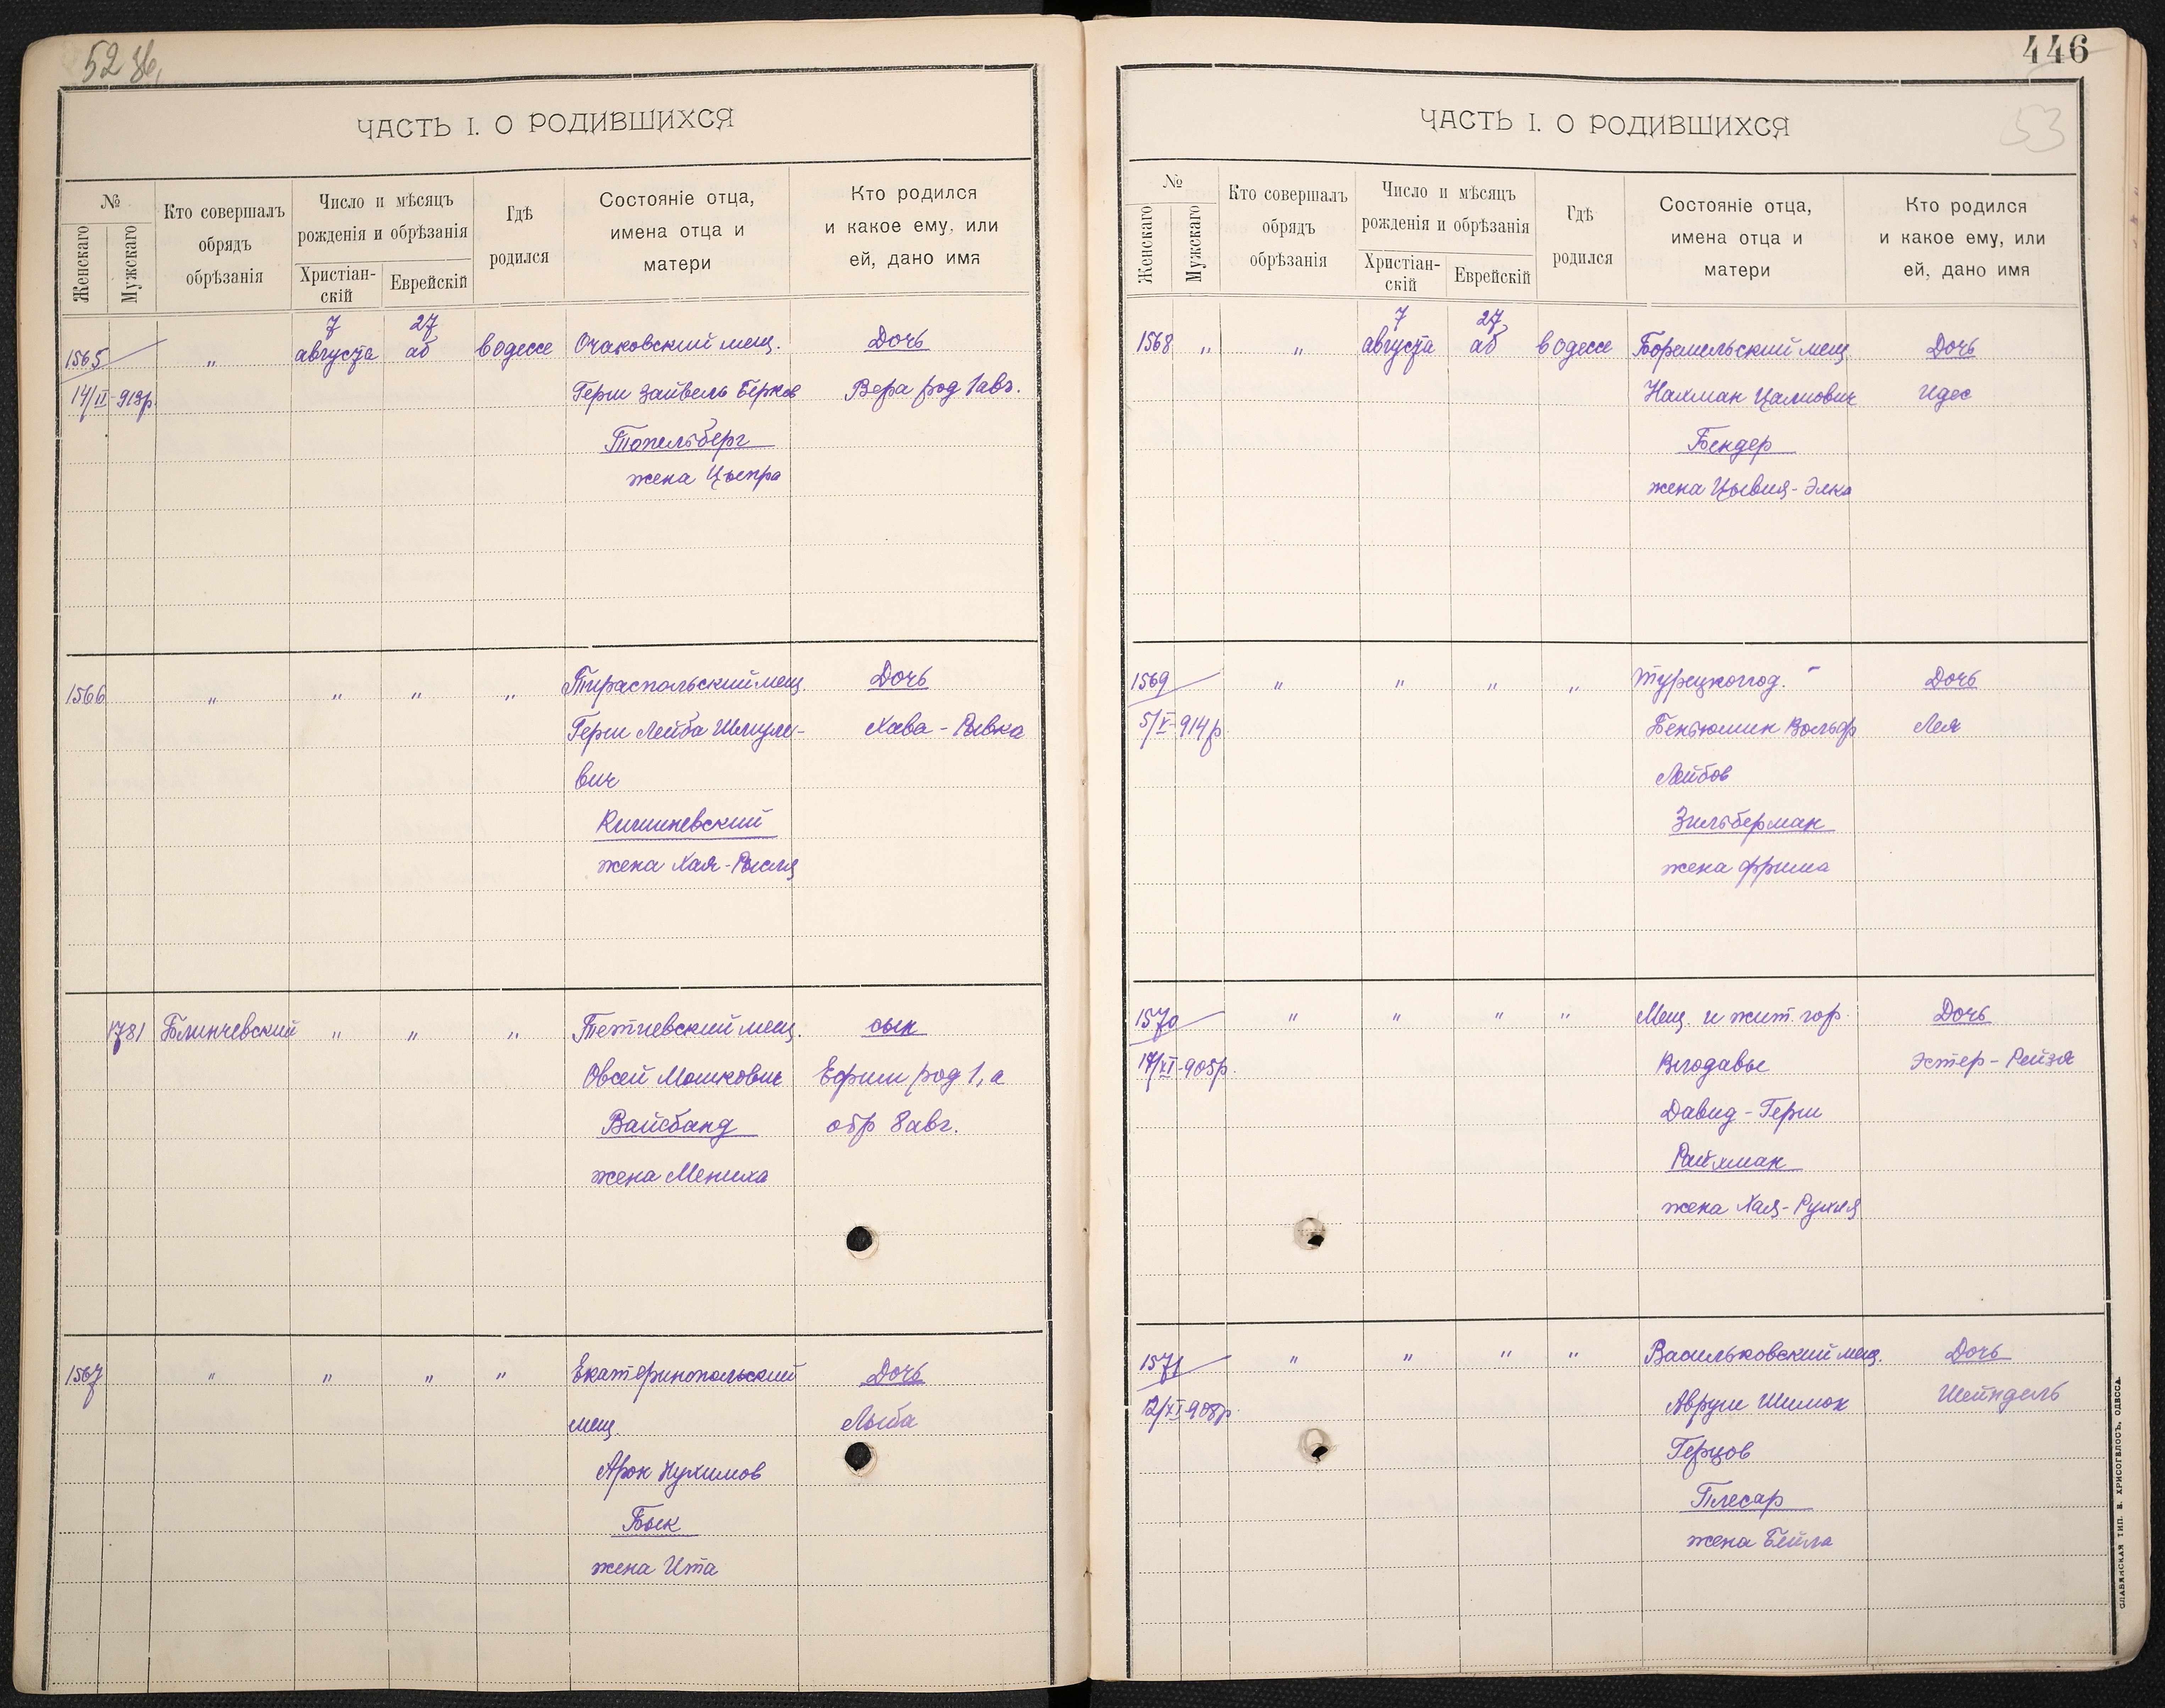 52
ЧАСТЬ I. О РОДИВШИХСЯ
№
Женскаго
Мужскаго
Кто совершалъ
обрядъ
обрѣзанія
Число и мѣсяцъ
рожденія и обрѣзанія
Христіан-
скій
Еврейскій
Гдѣ
родился
Состояніе отца,
имена отца и
матери
Кто родился
и какое ему, или
ей, дано имя
7 27
1565 „ августа аб в Одессе Очаковский мещ. Дочь
14/II-913р. Герш Зайвель Берков Вера род 1 авг.
Топельберг
жена Цыпра
1566 „ „ „ „ Тираспольский мещ. Дочь
Герш Лейба Шмуле- Хава-Рывка
вич
Кишиневский
жена Хая-Рысля
1781 Блинчевский „ „ „ Тетиевский мещ. сын
Овсей Мошкович Ефим род 1, а
Вайсбанд обр 8 авг.
жена Мениха
1567 „ „ „ „ Екатеринопольский Дочь
мещ. Лыба
Арон Нухимов
Бык
жена Ита
446
53
ЧАСТЬ I. О РОДИВШИХСЯ
№
Женскаго
Мужскаго
Кто совершалъ
обрядъ
обрѣзанія
Число и мѣсяцъ
рожденія и обрѣзанія
Христіан-
скій
Еврейскій
Гдѣ
родился
Состояніе отца,
имена отца и
матери
Кто родился
и какое ему, или
ей, дано имя
7 27
1568 „ „ августа аб в Одессе Боремельский мещ. Дочь
Нахман Цалиович Идес
Бендер
жена Цывия-Элка
1569 „ „ „ „ Турецкопод. Дочь
5/X-914р Беньюмин Вольф Лея
Лейбов
Зильберман
жена Фрима
1570 „ „ „ „ Мещ. и жит. гор. Дочь
17/XI-905р. Влодавы Эстер-Рейзя
Давид-Герш
Райхман
жена Хая-Рухля
1571 „ „ „ „ Васильковский мещ. Дочь
12/XI-908р. Аврум Шимон Шейндель
Герцов
Плесар
жена Бейла
СЛАВЯНСКАЯ ТИП. Е. ХРИСОГЕЛОСЪ, ОДЕССА.